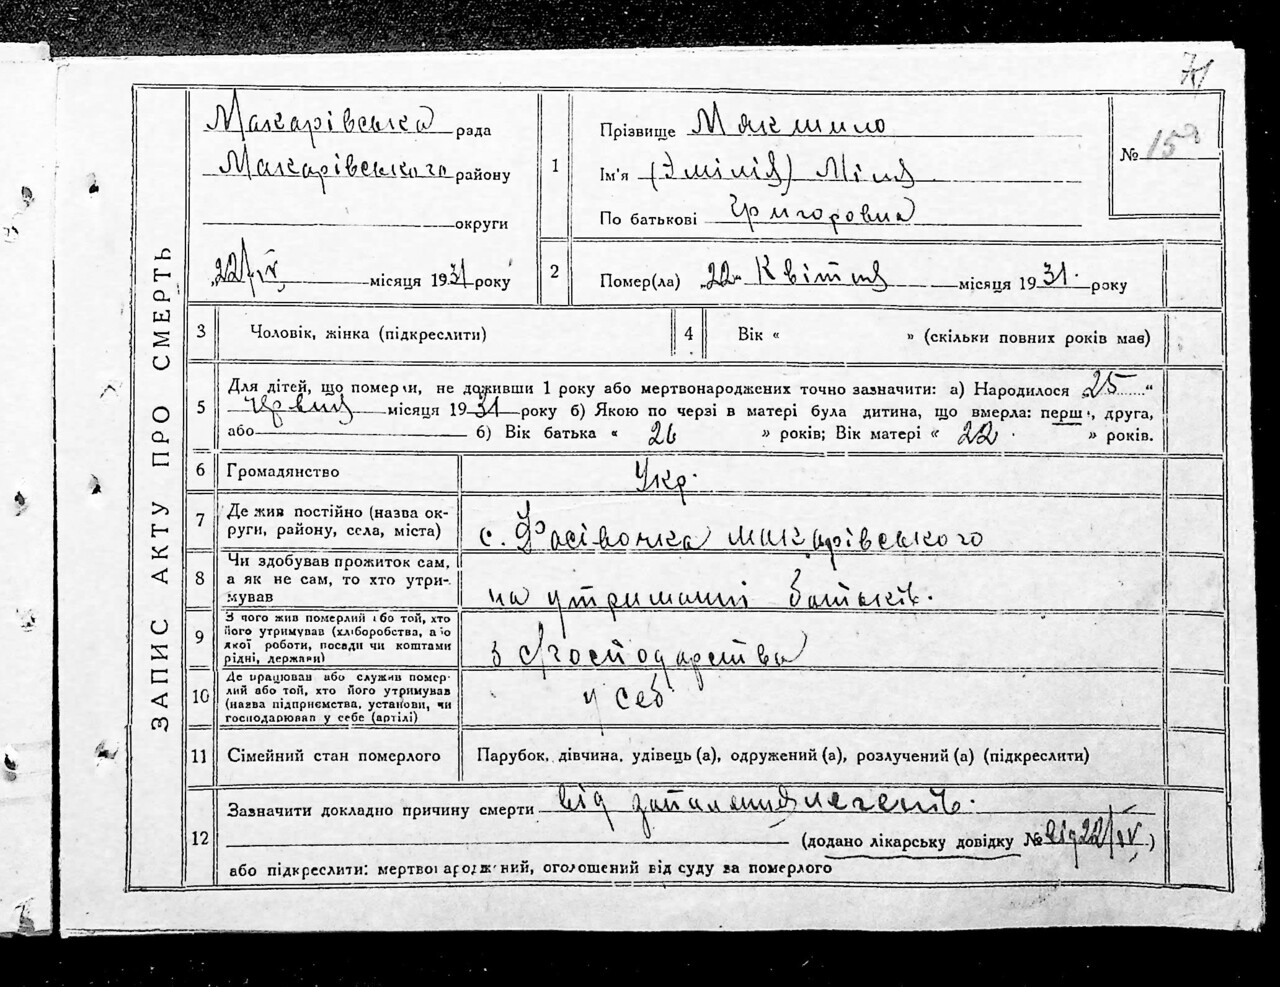 71
ЗАПИС АКТУ ПРО СМЕРТЬ
Макарівська рада
Макарівського району
округи
„22/IV місяця 1931 року
1
Прізвище Мякшило
Ім'я (Эмілія) Міля
По батькові Григоровна
№ 15
2
Помер(ла) „22" Квітня місяця 1931 року
3 Чоловік, жінка (підкреслити)
4 Вік « » (скільки повних років має)
5
Для дітей, що померли, не доживши 1 року або мертвонароджених точно зазначити: а) Народилося „25"
Червня місяця 1931 року б) Якою по черзі в матері була дитина, що вмерла: перша, друга,
або б) Вік батька « 26 » років; Вік матері « 22 » років.
6 Громадянство Укр.
7
Де жив постійно (назва ок-
руги, району, села, міста)
с. Фасівочка макарівського
8
Чи здобував прожиток сам,
а як не сам, то хто утри-
мував
на утриманні батьків.
9
З чого жив померлий або той, хто
його утримував (хліборобства, або
якої роботи, посади чи коштами
рідні, держави)
з с/господарства
10
Де працював або служив помер-
лий або той, хто його утримував
(назва підприємства, установи, чи
господарював у себе (артілі)
у себ
11 Сімейний стан померлого
Парубок, дівчина, удівець (а), одружений (а), розлучений (а) (підкреслити)
12
Зазначити докладно причину смерти від запалення легенів.
(додано лікарську довідку № від 22/IV)
або підкреслити: мертвонароджений, оголошений від суду за померлого